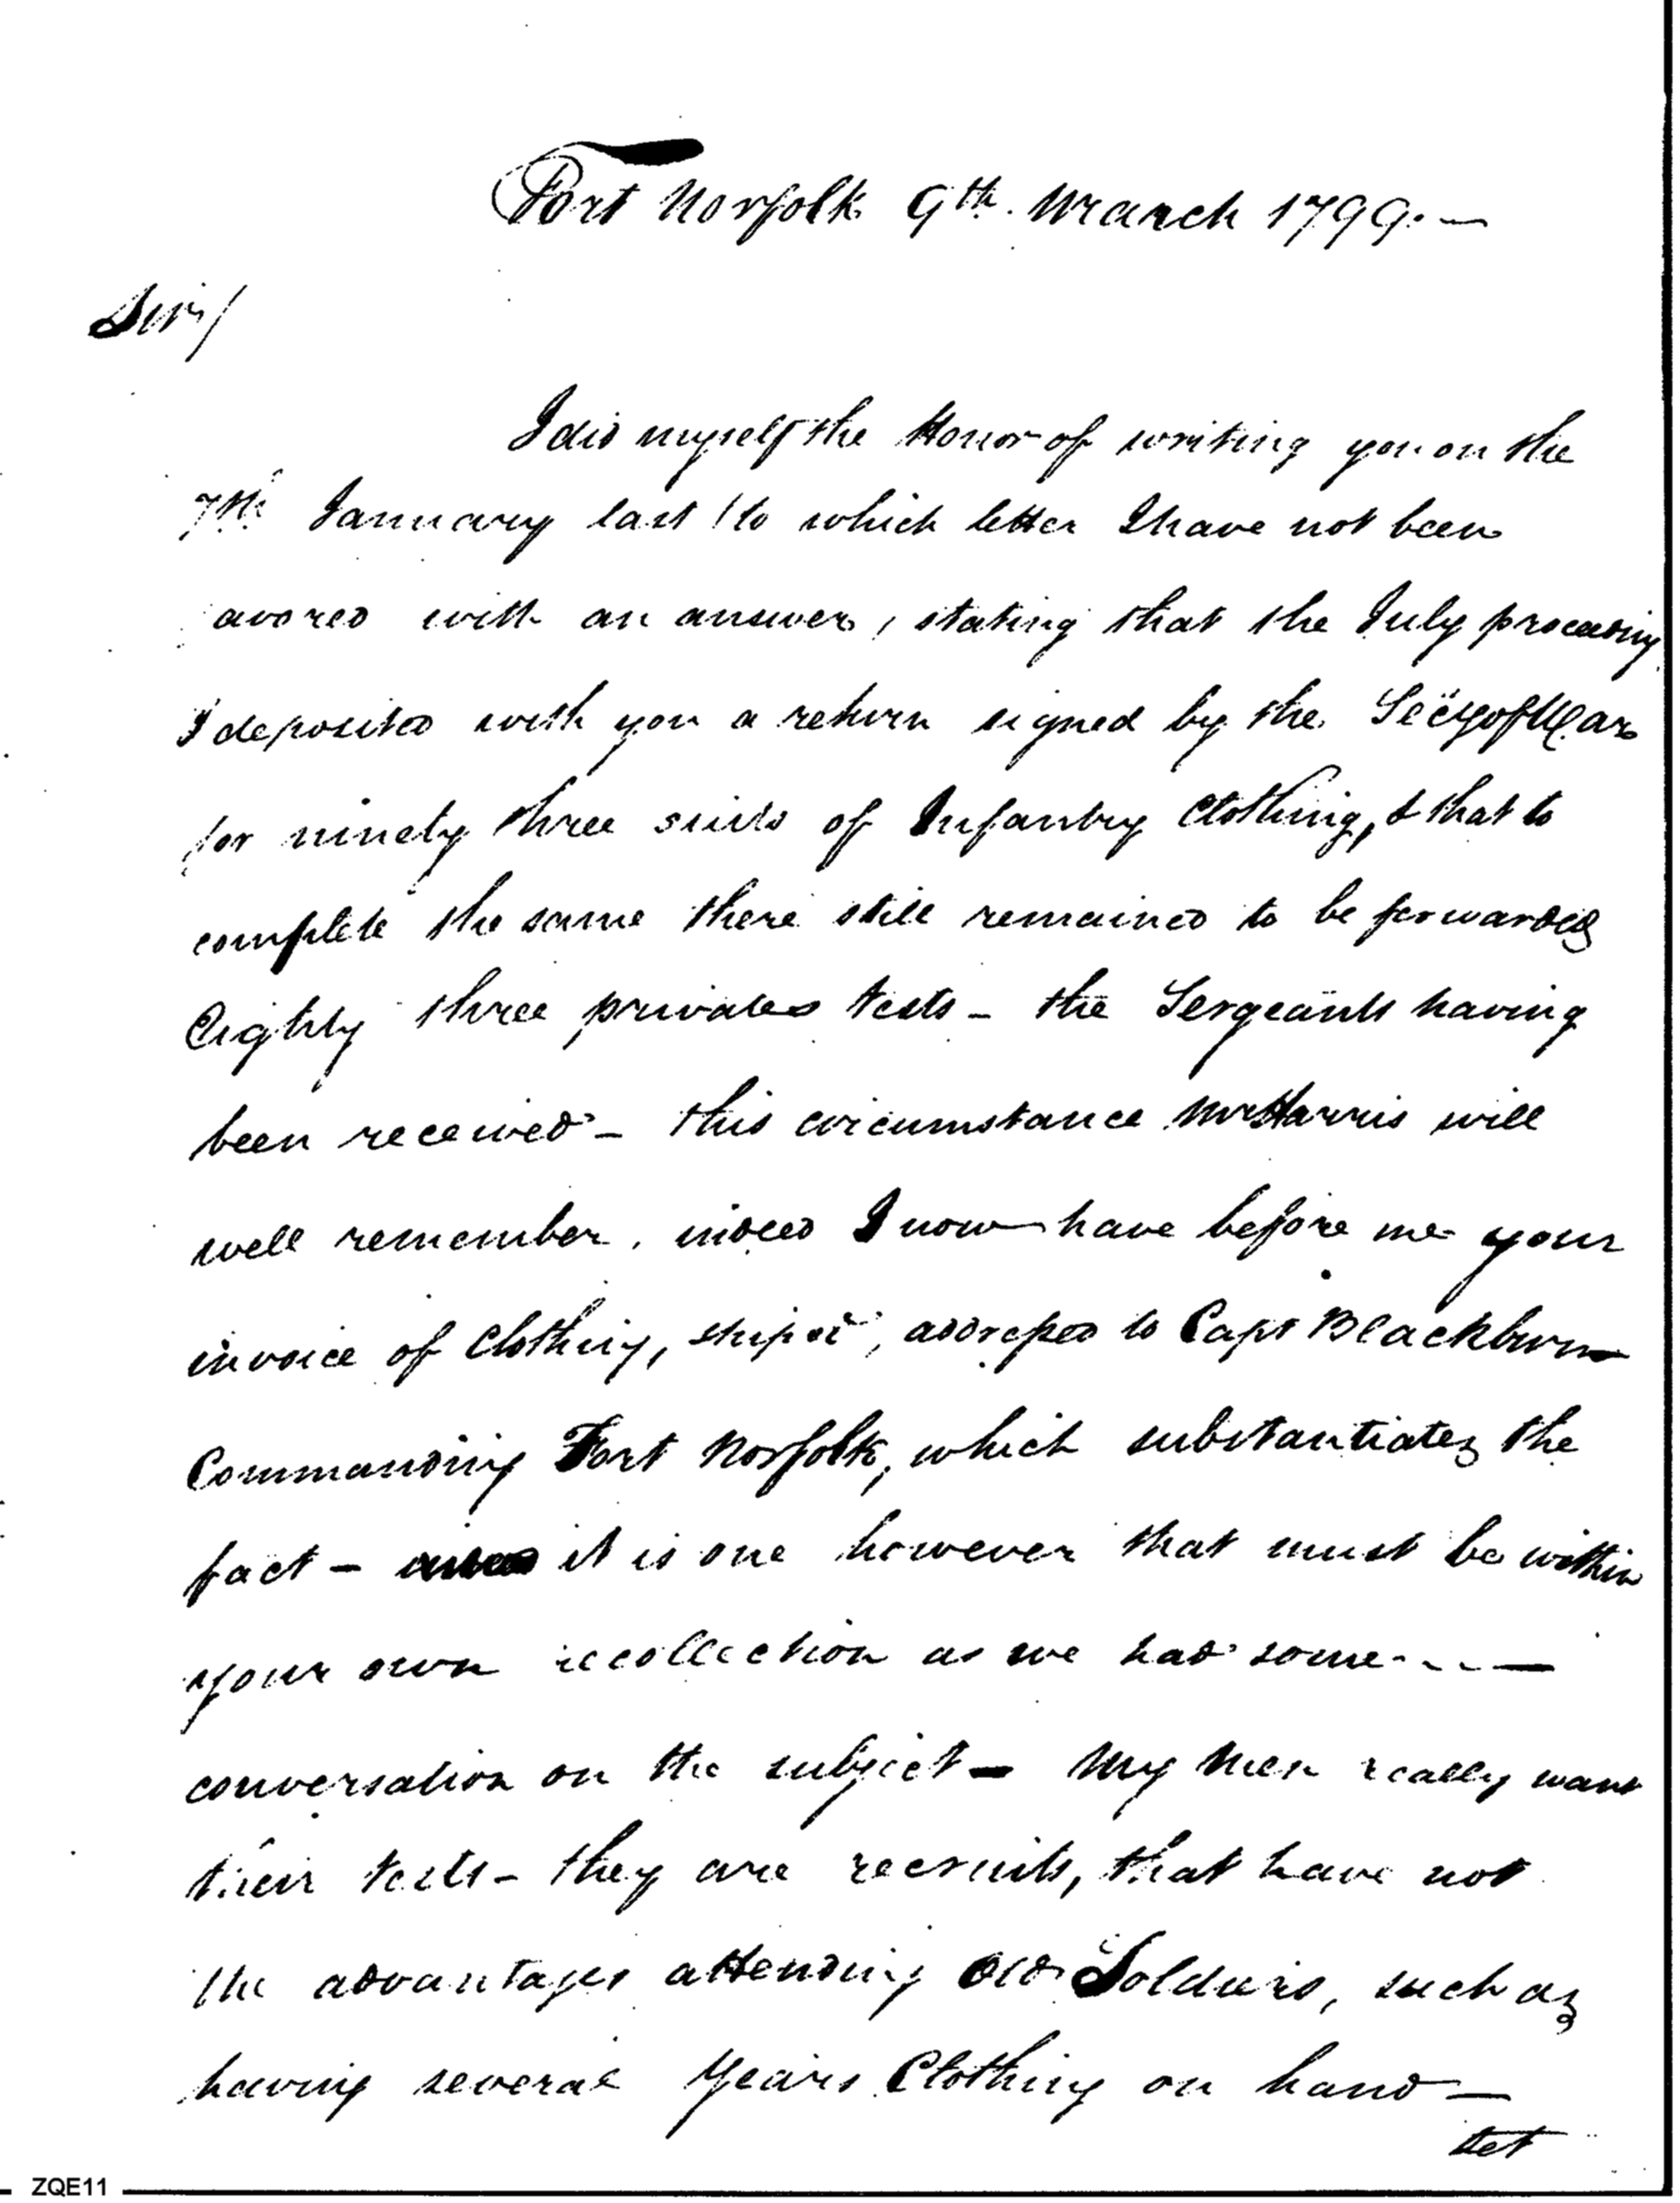 Fort Norfolk 9th. March 1799. —
Sir,/
I did myself the Honor of writing you on the
7th January last (to which letter I have not been
avored with an answer, stating that the July preceeding
I deposited with you a return signed by the Secy of War
for ninety three suits of Infantry Clothing, & that to
complete the same there still remained to be forwarded
Eighty three privates Vests – the Sergeants having
been received – this circumstance Mr Harris will
well remember, indeed I now have before me your
invoice of Clothing, shiped, addressed to Capt Blackburn
Commanding Fort Norfolk, which substantiates the
fact – it is one however that must be within
your own recollection as we had some - - - —
conversation on the subject – My Men really want
their Vests – they are recruits, that have not
the advantages attending Old Soldiers, such as
having several Years Clothing on hand —
Let
ZQE11